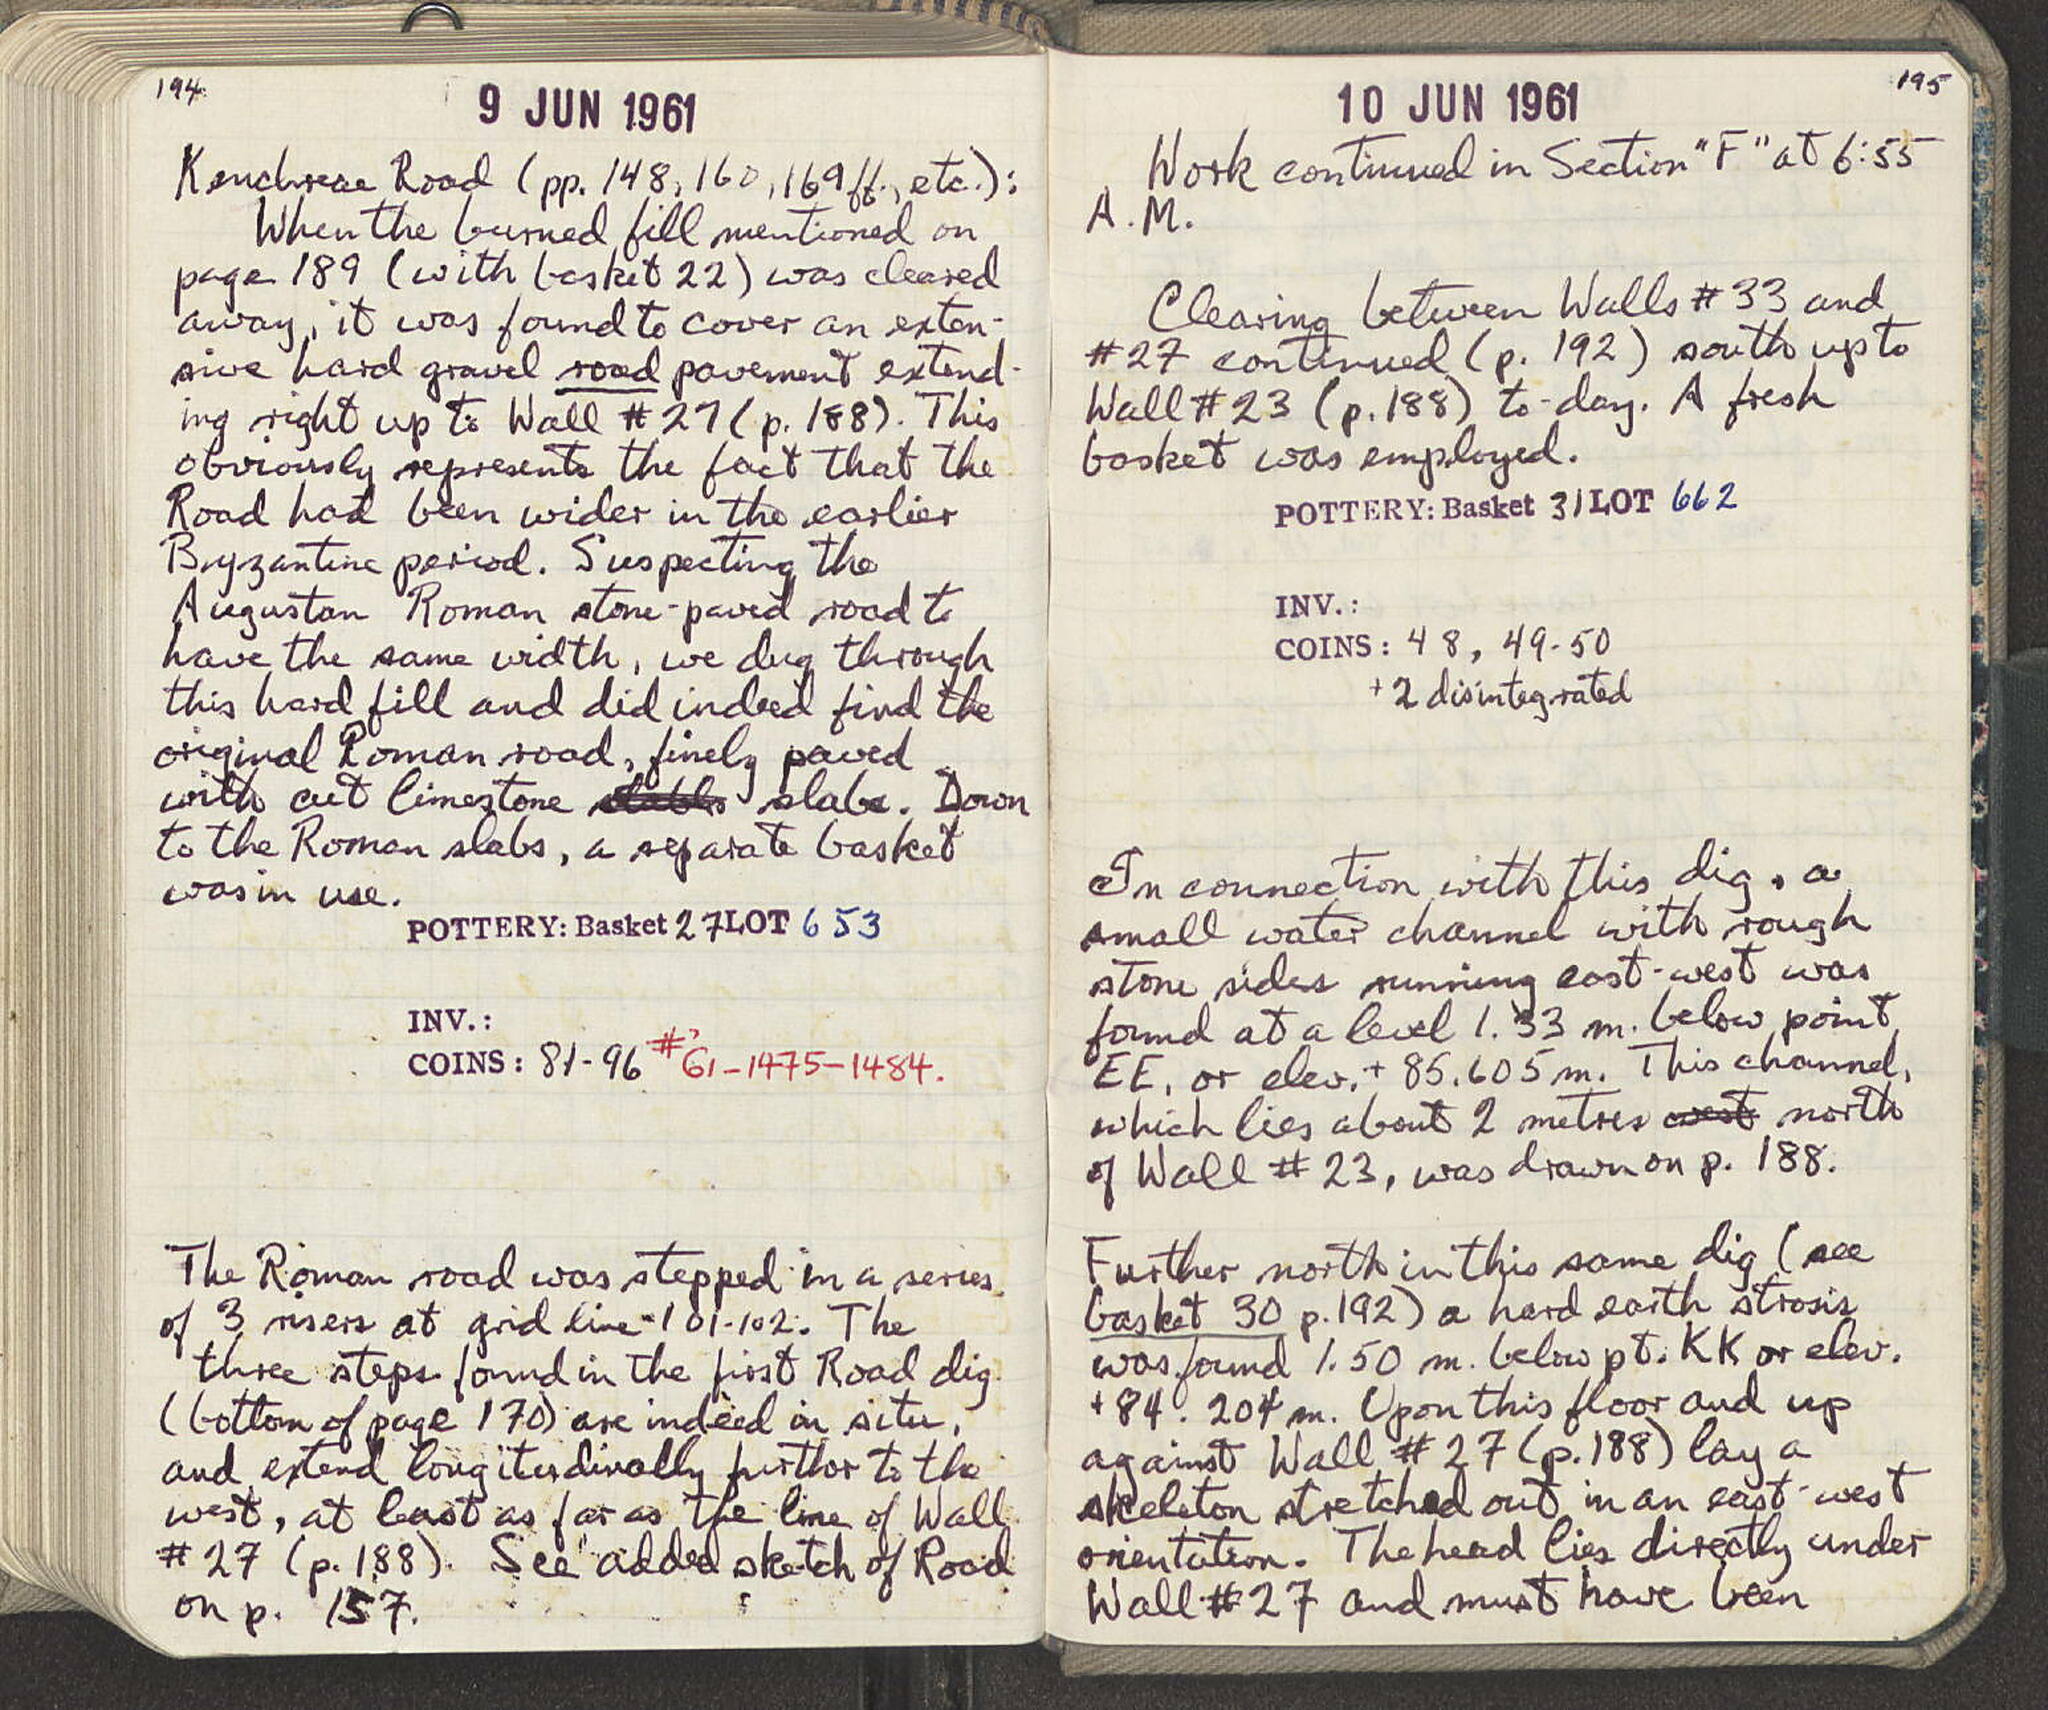 194
9 JUN 1961
Kenchreae Road (pp. 148, 160, 169ff., etc.):
When the burned fill mentioned on
page 189 (with basket 22) was cleared
away, it was found to cover an exten-
sive hard gravel road pavement extend-
ing right up to Wall #27 (p. 188). This
obviously represents the fact that the
Road had been wider in the earlier
Byzantine period. Suspecting the
Augustan Roman stone-paved road to
have the same width, we dug through
this hard fill and did indeed find the
original Roman road, finely paved
with cut limestone slabs. Down
to the Roman slabs, a separate basket
was in use.
POTTERY: Basket 27 LOT 653
INV.:
COINS: 81-96 #61-1475-1484.
The Roman road was stepped in a series
of 3 risers at grid line 101-102. The
three steps found in the first Road dig
(bottom of page 170) are indeed in situ,
and extend longitudinally further to the
west, at least as far as the line of Wall
#27 (p. 188). See added sketch of Road
on p. 157.
195
10 JUN 1961
Work continued in Section "F" at 6:55
A.M.
Clearing between Walls #33 and
#27 continued (p. 192) south up to
Wall #23 (p. 188) to-day. A fresh
basket was employed.
POTTERY: Basket 31 LOT 662
INV.:
COINS: 48, 49-50
+2 disintegrated
In connection with this dig, a
small water channel with rough
stone sides running east-west was
found at a level 1.33 m. below point
EE, or elev. +85.605 m. This channel,
which lies about 2 metres west north
of Wall #23, was drawn on p. 188.
Further north in this same dig (see
basket 30 p. 192) a hard earth strosis
was found 1.50 m. below pt. KK or elev.
+84.204 m. Upon this floor and up
against Wall #27 (p. 188) lay a
skeleton stretched out in an east-west
orientation. The head lies directly under
Wall #27 and must have been